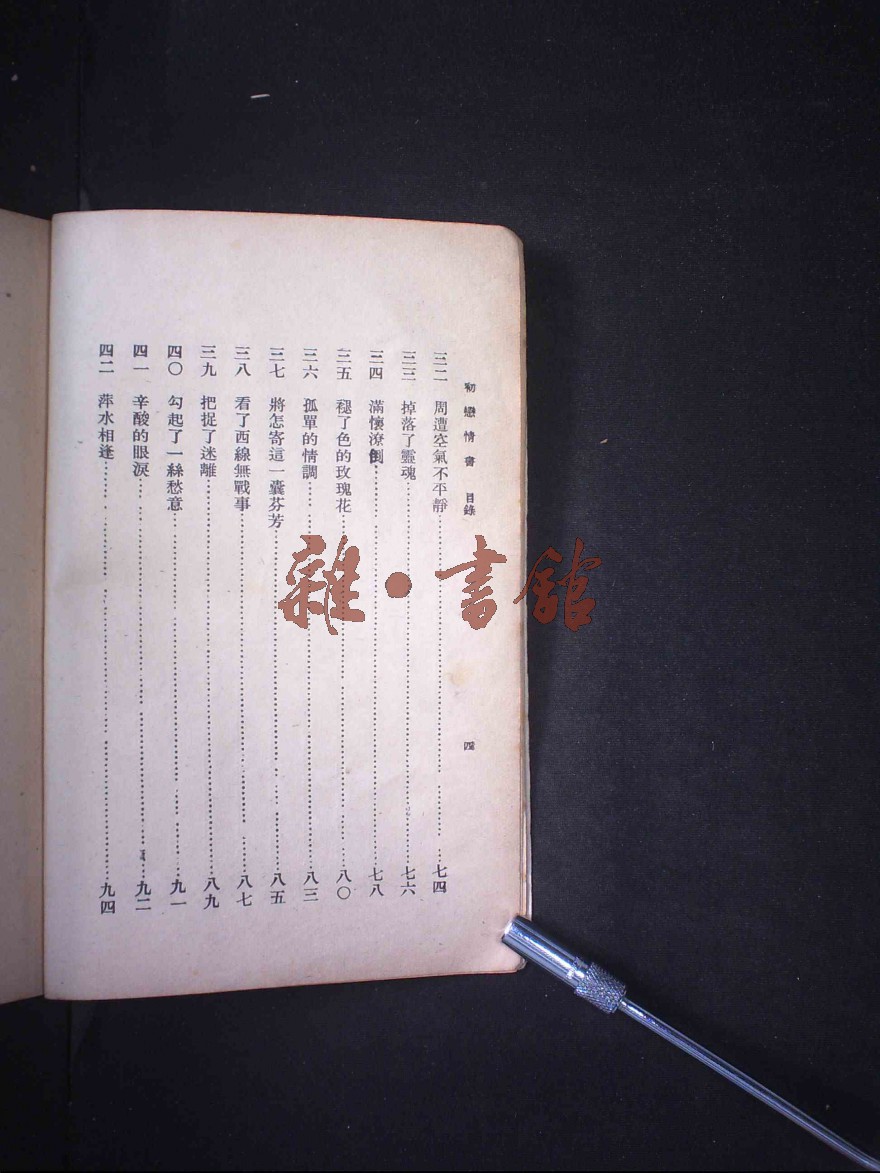 初戀情書 目錄 四
三二 周遭空氣不平靜 七四
三三 掉落了靈魂 七六
三四 滿懷潦倒 七八
三五 褪了色的玫瑰花 八〇
三六 孤單的情調 八三
三七 將怎寄這一囊芬芳 八五
三八 看了西線無戰事 八七
三九 把捉了迷離 八九
四〇 勾起了一絲愁意 九一
四一 辛酸的眼淚 九二
四二 萍水相逢 九四
雜·書館